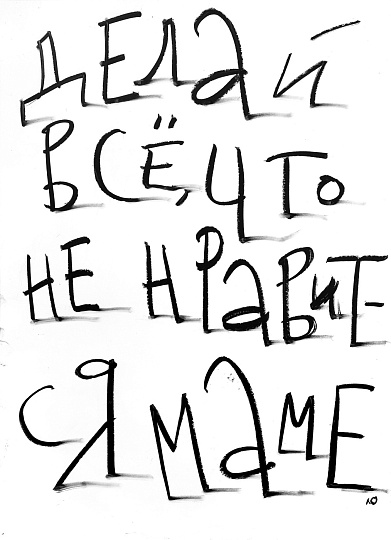 ДЕЛАЙ
ВСЁ, ЧТО
НЕ НРАВИТ
СЯ МАМЕ
Ю